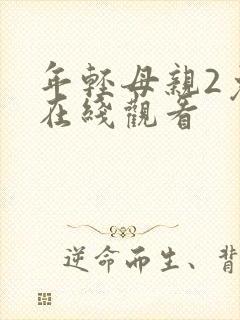 年輕母親2
在綫觀看
逆命而生、背